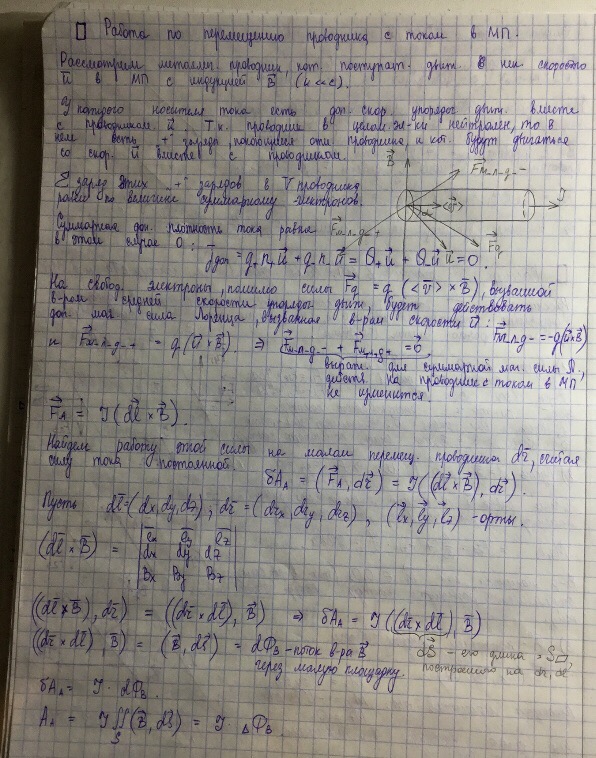 Работа по перемещению проводника с током в МП.
Рассмотрим металлич. проводник, кот. поступат. движ. с нек скоростью
u⃗ в МП с индукцией B⃗ (u<<c).
У каждого носителя тока есть доп. скор. упорядоч движ. вместе
с проводником u⃗. Т.к. проводник в целом эл-ки нейтрален, то в
нем есть „+" заряды, покоющиеся отн. проводника, и кот. будут двигаться
со скор. u⃗ вместе с проводником.
Σ заряд этих „+" зарядов в V проводника
равен по величине суммарному электронов.
Суммарная доп. плотность тока равна
в этом случае 0: j⃗доп = q₊n₊u⃗ + q₋n₋u⃗ = Q₊u⃗ + Q₋u⃗ = 0.
B⃗ Fм-л-д- - I
α <v⃗> Fм-л-д- + u⃗ F⃗q
На свобод. электроны, помимо силы F⃗q = q(<v⃗> × B⃗), вызванной
в-ром средней скорости упорядоч движ, будет действовать
доп. маг. сила Лоренца, вызванная в-ром скорости u⃗:
и F⃗м-л-д- - = q(u⃗×B⃗) ⇒ F⃗м-л-д- - + F⃗м-л-д- + = 0⃗, F⃗м-л-д- = -q(u⃗×B⃗)
выраж. для суммарной маг. силы А.,
действ на проводник с током в МП
не изменится
F⃗A = I(dl⃗ × B⃗).
Найдем работу этой силы на малом перемещ. проводника dr⃗, считая
силу тока постоянной.
δAA = (F⃗A, dr⃗) = I((dl⃗ × B⃗), dr⃗).
Пусть dl⃗=(dx, dy, dz); dr⃗ = (drx, dry, drz), (e⃗x, e⃗y, e⃗z) - орты.
(dl⃗ × B⃗) = | e⃗x e⃗y e⃗z
dx dy dz
Bx By Bz |
((dl⃗ × B⃗), dr⃗) = ((dr⃗ × dl⃗), B⃗) ⇒ δAA = I((dr⃗ × dl⃗), B⃗)
((dr⃗ × dl⃗), B⃗) = (B⃗, dS⃗) = dФB - поток в-ра B⃗ через малую площадку.
dS⃗ - его длина = S▱, построенного на dr⃗, dl⃗
δAA = I · dФB
AA = I ∬S (B⃗, dS⃗) = I · ΔФB.